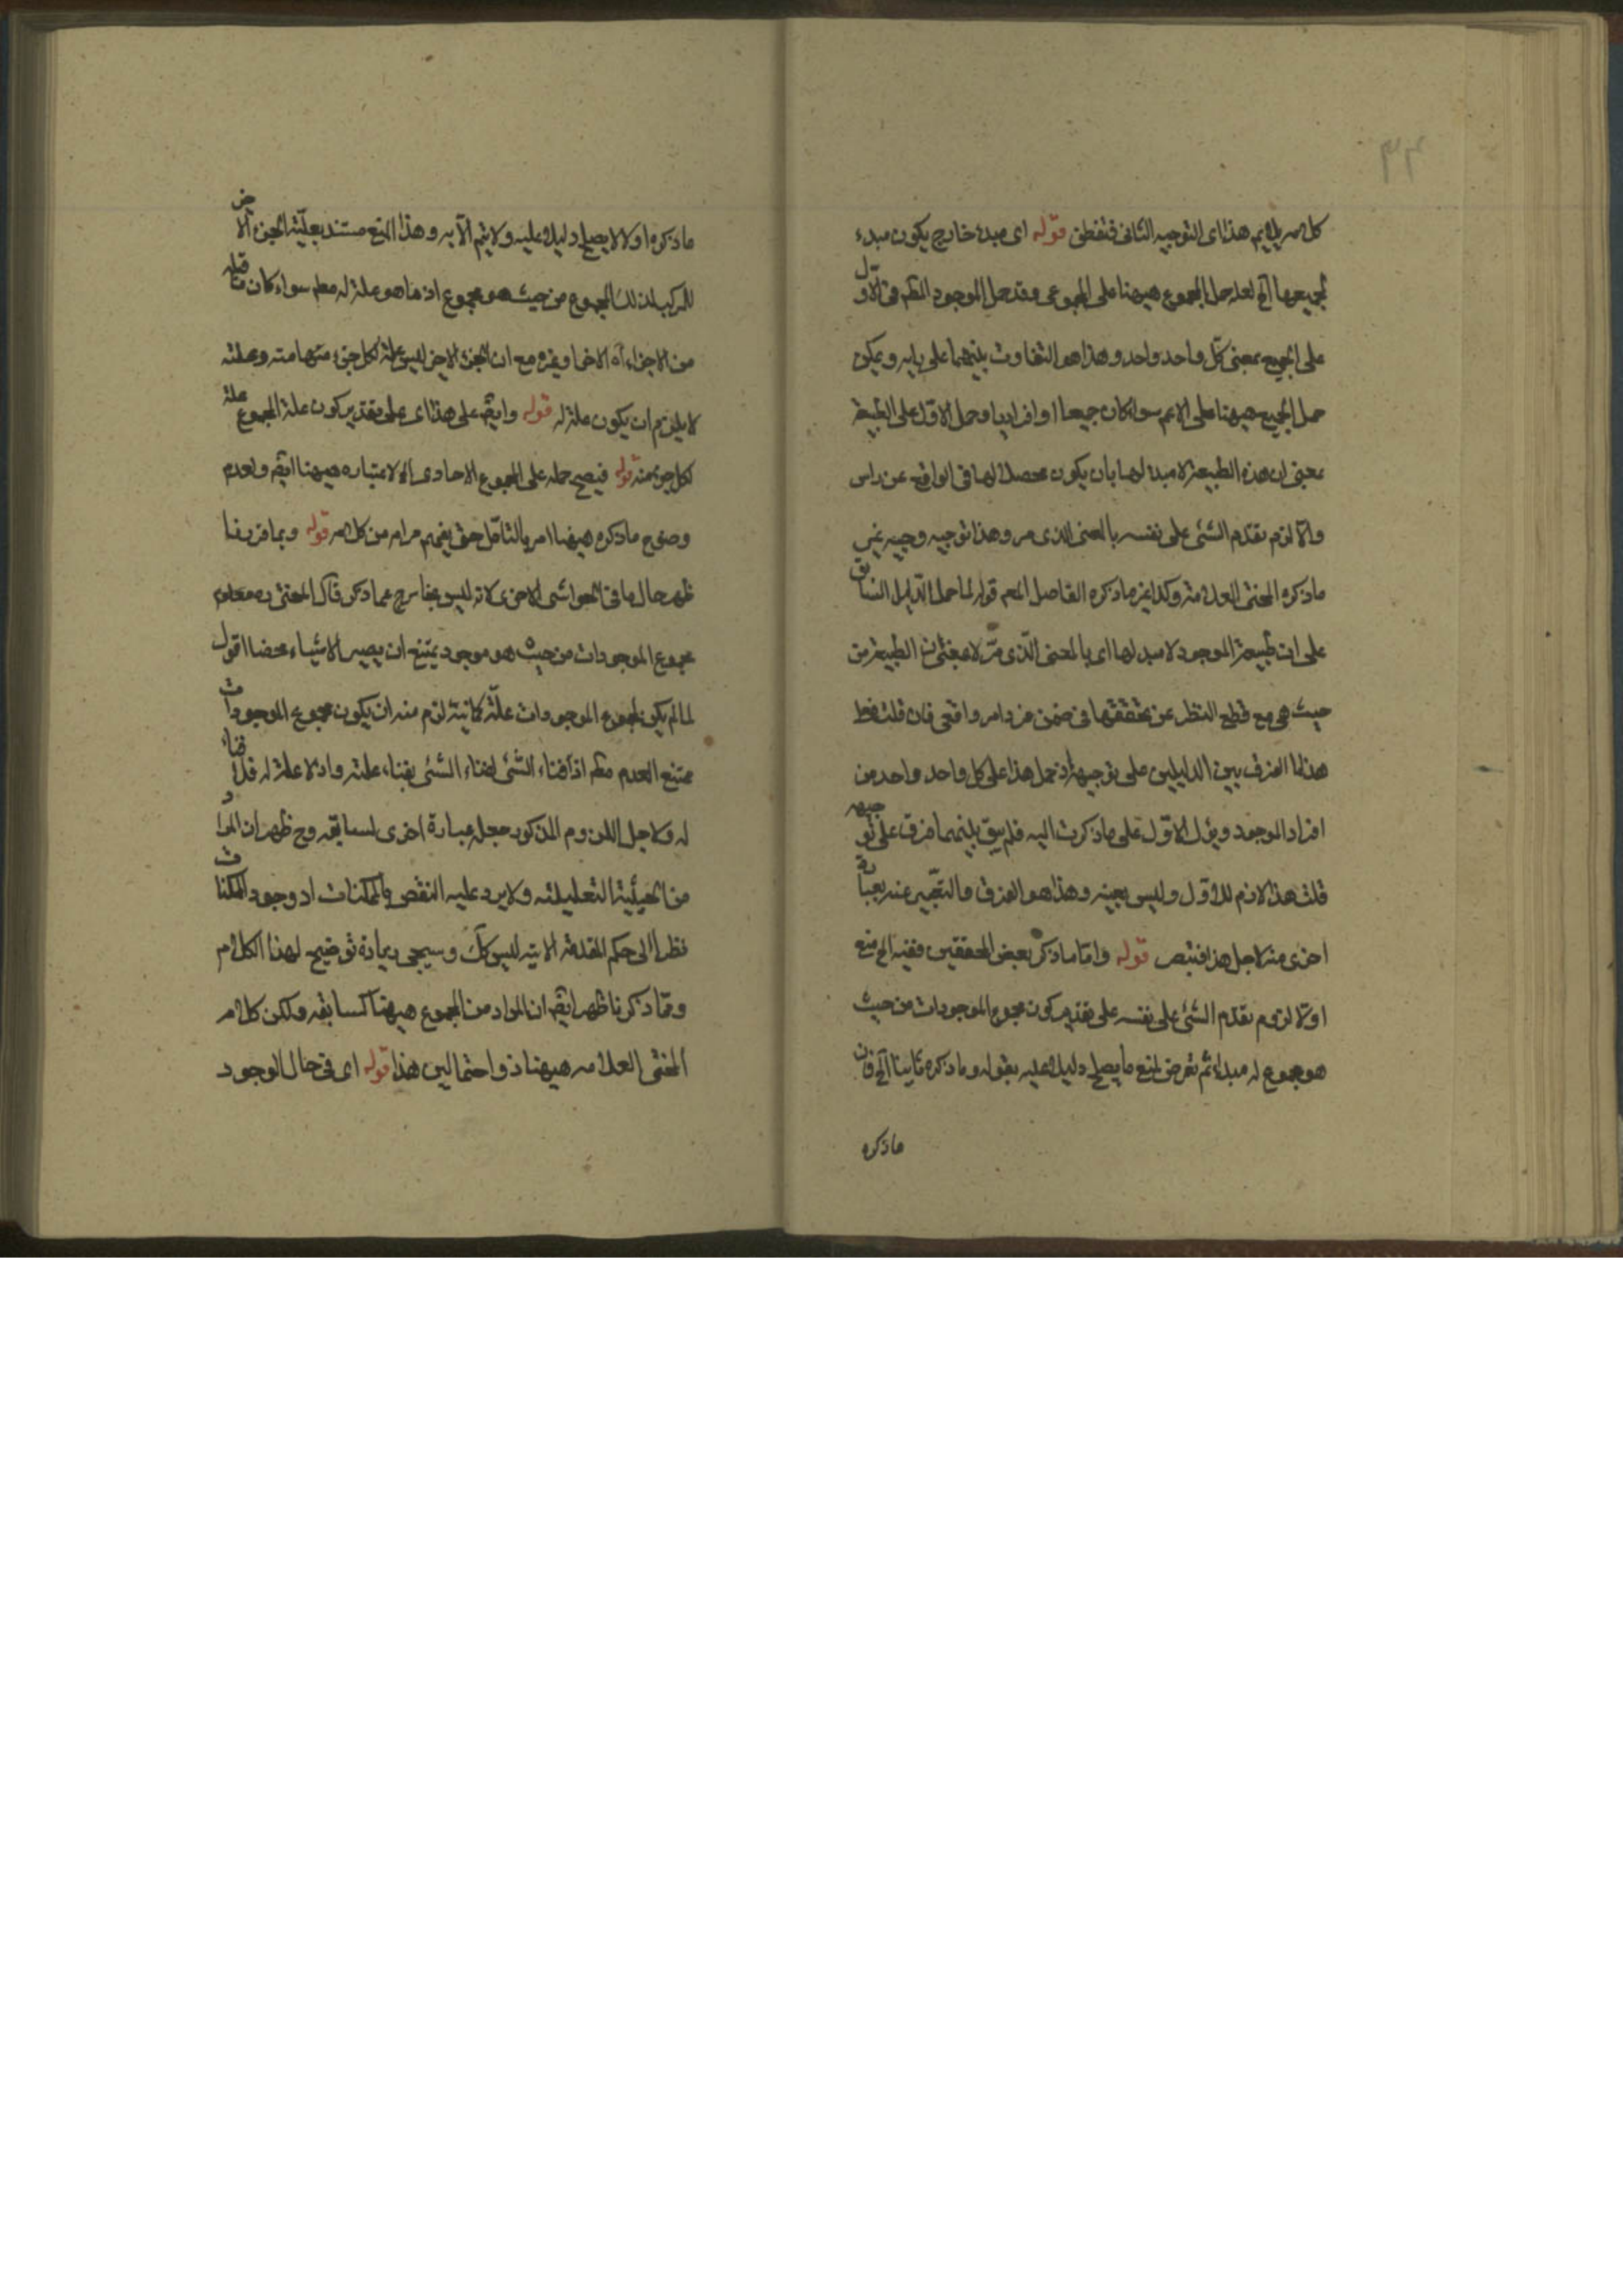 كلامه يلايم هذا اى التوجيه الثانى فتفطن قوله اى مبدء خارج يكون مبدء
لجميعها آلخ لعله حمل المجموع هيهنا على المجموعى وقد حمل الموجود المظم فى الاول
على الجميع بمعنى كل واحد واحد وهذا هو التفاوت بينهما على رايه ويمكن
حمل الجميع هيهنا على الاعم سواء كان جميعا او افراديا وحمل الاول على الطبيعة
بمعنى ان هذه الطبيعة لا مبدء لها بان يكون محصلا لها فى الواقع عن راس
والا لزم تقدم الشئ على نفسه بالمعنى الذى مر وهذا توجيه وجيه غير
ما ذكره المحشى العلامة وكذا غير ما ذكره الفاضل قوله لما حمل الدليل السابق
على ان طبيعة الموجود لا مبدء لها اى بالمعنى الذى مر لا بمعنى ان الطبيعة من
حيث هى مع قطع النظر عن تحققها فى ضمن فرد امر واقعى فان قلت فعلى
هذا ما الفرق بين الدليلين على توجيهه اذ حمل هذا على كل واحد واحد من
افراد الموجود ويؤل الاول على ما ذكرت اليه فلم يبق بينهما فرق على توجيهه
قلت هذا لازم للاول وليس بعينه وهذا هو الفرق والتعبير عنه بعبارة
اخرى منه لاجل هذا فتبصر قوله واما ما ذكر بعض المحققين ففيه الخ منع
اولا لزوم تقدم الشئ على نفسه على تقدير كون مجموع الموجودات من حيث
هو مجموع له مبداء ثم تعرض لمنع ما يصلح دليلا عليه بقوله وما ذكره ثانيا الخ فان
ما ذكره
ما ذكره اولا لا يصلح دليلا عليه ولا يتم الا به وهذا المنع مستند بعلية الجزء الاخر
للمركب لذلك المجموع من حيث هو مجموع اذ ما هو علة له معلم سواء كان ما قبله
من الاجزاء آه الاخر او غيره مع ان الجزء الاخر ليس علة لكل جزء منها منه وعلته
لا يلزم ان يكون علة له قوله وايضم على هذا اى على تقدير كون علة المجموع علة
لكل جزء منه قوله فيصح حمله على المجموع الاحادى آه لا عتباره هيهنا ايضم ولعدم
وضوح ما ذكره هيهنا امر بالتامل حتى يفهم مرامه من كلامه قوله وبما قررنا
ظهر حال ما فى الحواشى الاخرى لانه ليس بخارج عما ذكر قال المحشى ره معلوم
مجموع الموجودات من حيث هو موجود يمتنع ان يصير لا شياء محضا اقول
لما لم يكن لمجموع الموجودات علة كانية لزم منه ان يكون مجموع الموجودات
ممتنع العدم اذ افناء الشئ افناء الشئ بفناء علته واذ لا علة له فلا فناء
له ولاجل اللزوم المذكور جعله عبارة اخرى لسابقه وح ظهر ان المراد
من الحيثية التعليلية ولا يرد عليه النقض بالممكنات اذ وجود الممكنات
نظرا الى حكم المقدمة الاتيه ليس كك وسيجى زيادة توضيح لهذا الكلام
ومما ذكرنا ظهر ايضم ان المراد من المجموع هيهنا كسابقه ولكن كلام
المحشى العلامه هيهنا ذو احتمالين هذا قوله اى فى حال الوجود